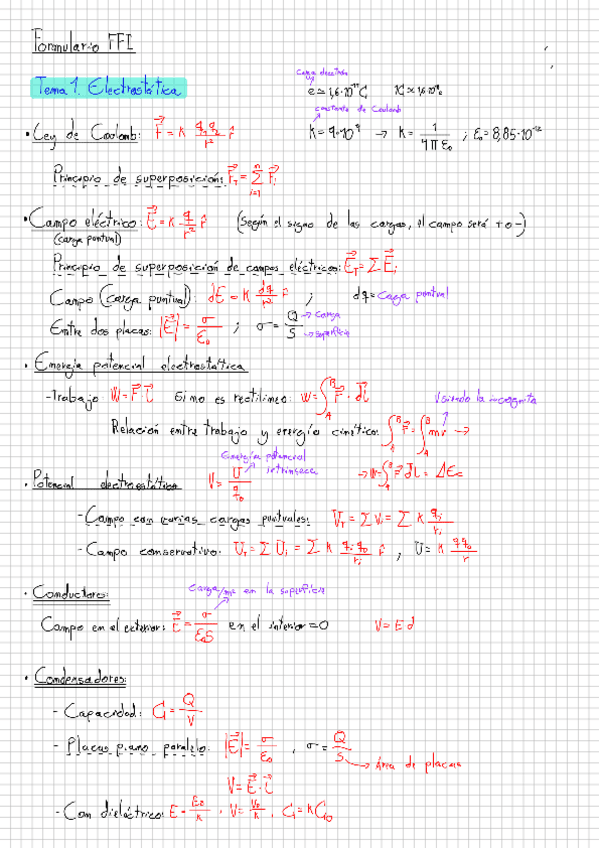 Formulario FFI
Carga electrón
Tema 1. Electrostática e ≃ 1,6·10⁻¹⁹ C
constante de Coulomb
• Ley de Coulomb: F⃗ = K q₁q₂/r² r̂ K = 9·10⁹ → K = 1/(4πε₀) ; ε₀ = 8,85·10⁻¹²
Principio de superposición: F⃗_T = Σ_{i=1}^{n} F⃗_i
• Campo eléctrico: E⃗ = K q/r² r̂ (Según el signo de las cargas, el campo será + o -)
(carga puntual)
Principio de superposición de campos eléctricos: E⃗_T = Σ E⃗_i
Campo (carga puntual): dE = K dq/r² r̂ ; dq = Carga puntual
Entre dos placas: |E⃗| = σ/ε₀ ; σ = Q/S → Carga → superficie
• Energía potencial electrostática
- Trabajo: W = F⃗·l⃗ Si no es rectilíneo: W = ∫_A^B F⃗·dl⃗ Usando la incognita
Relación entre trabajo y energía cinética: ∫_A^B F⃗ = ∫_A^B →
Energía potencial
intrínseca → W = ∫_A^B F⃗ dl = ΔEc
• Potencial electrostático V = U/q₀
- Campo con varias cargas puntuales: V_T = Σ V_i = Σ K q_i/r_i
- Campo conservativo: U_T = Σ U_i = Σ K q_i·q₀/r_i r̂ , U = K q q₀/r
Carga/m² en la superficie
• Conductores:
Campo en el exterior: E⃗ = σ/ε₀S en el interior = 0 V = E d
• Condensadores:
- Capacidad: C = Q/V
- Placas plano paralelo: |E⃗| = σ/ε₀ , σ = Q/S → Área de placas
V = E⃗·l⃗
- Con dieléctrico: E = E₀/K , V = V₀/K , C = K C₀